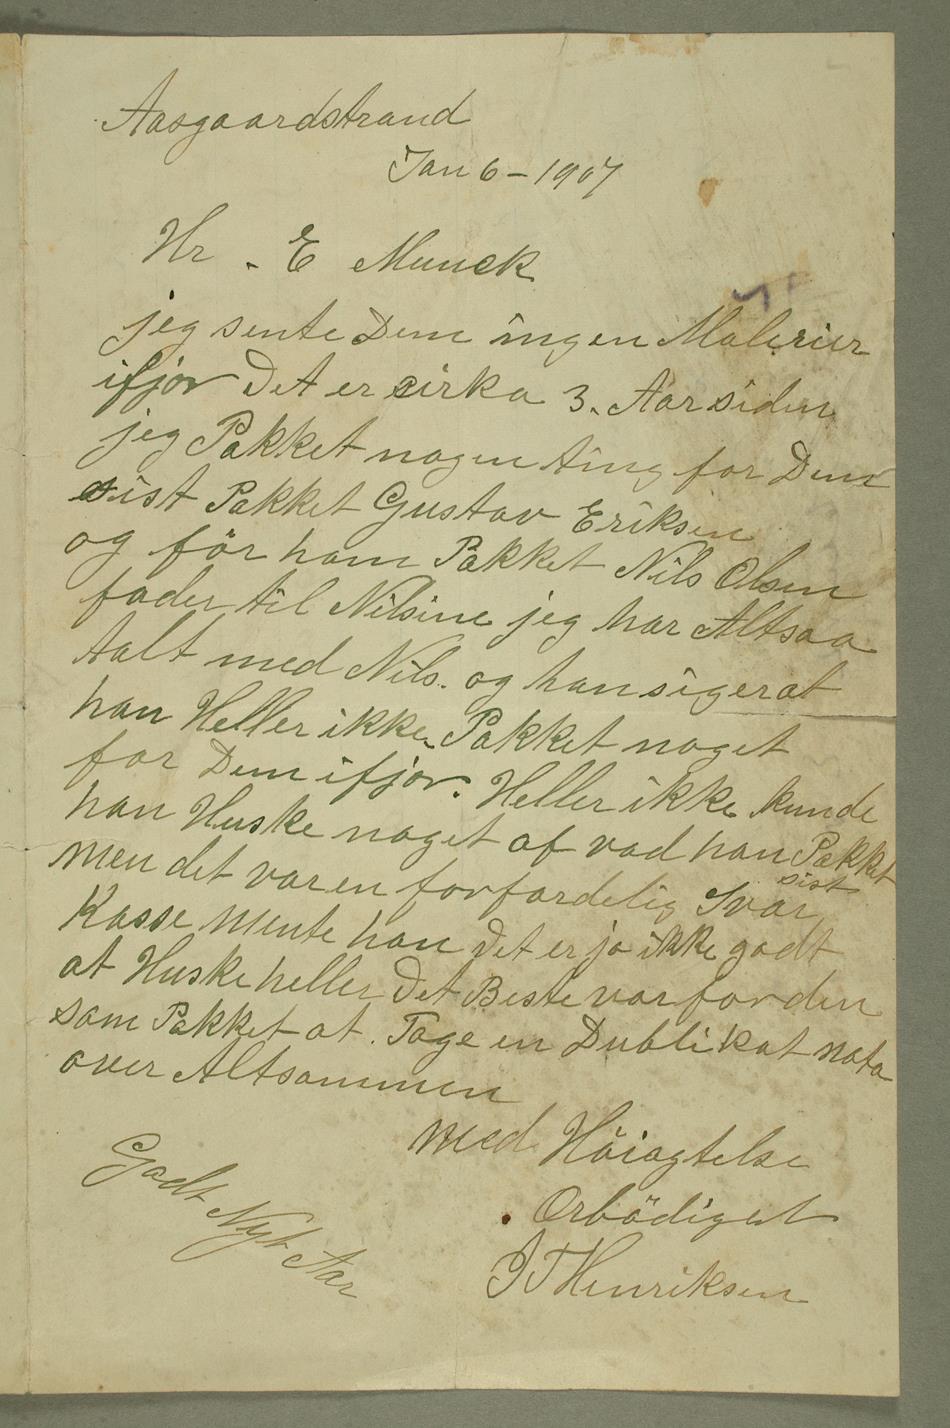 Aasgaardstrand
Jan 6 - 1907
Hr . E Munck
jeg sente Dem ingen Malerier
ifjor Det er cirka 3. Aar siden
jeg Pakket nogen ting for Dem
sist Pakket Gustav Eriksen
og för ham Pakket Nils Olsen
fader til Nilsine jeg har Altsaa
talt med Nils. og han siger at
han Heller ikke Pakket noget
for Dem ifjor. Heller ikke kunde
han Huske noget af vad han Pakket
sist
men det var en forfardelig Svar
Kasse mente han Det er jo ikke godt
at Huske heller Det Beste var for den
som Pakket at. Tage en Dublikat nota
over Altsammen
med Höiagtelse
Godt Nyt Aar
Orbödigest
J T Henriksen